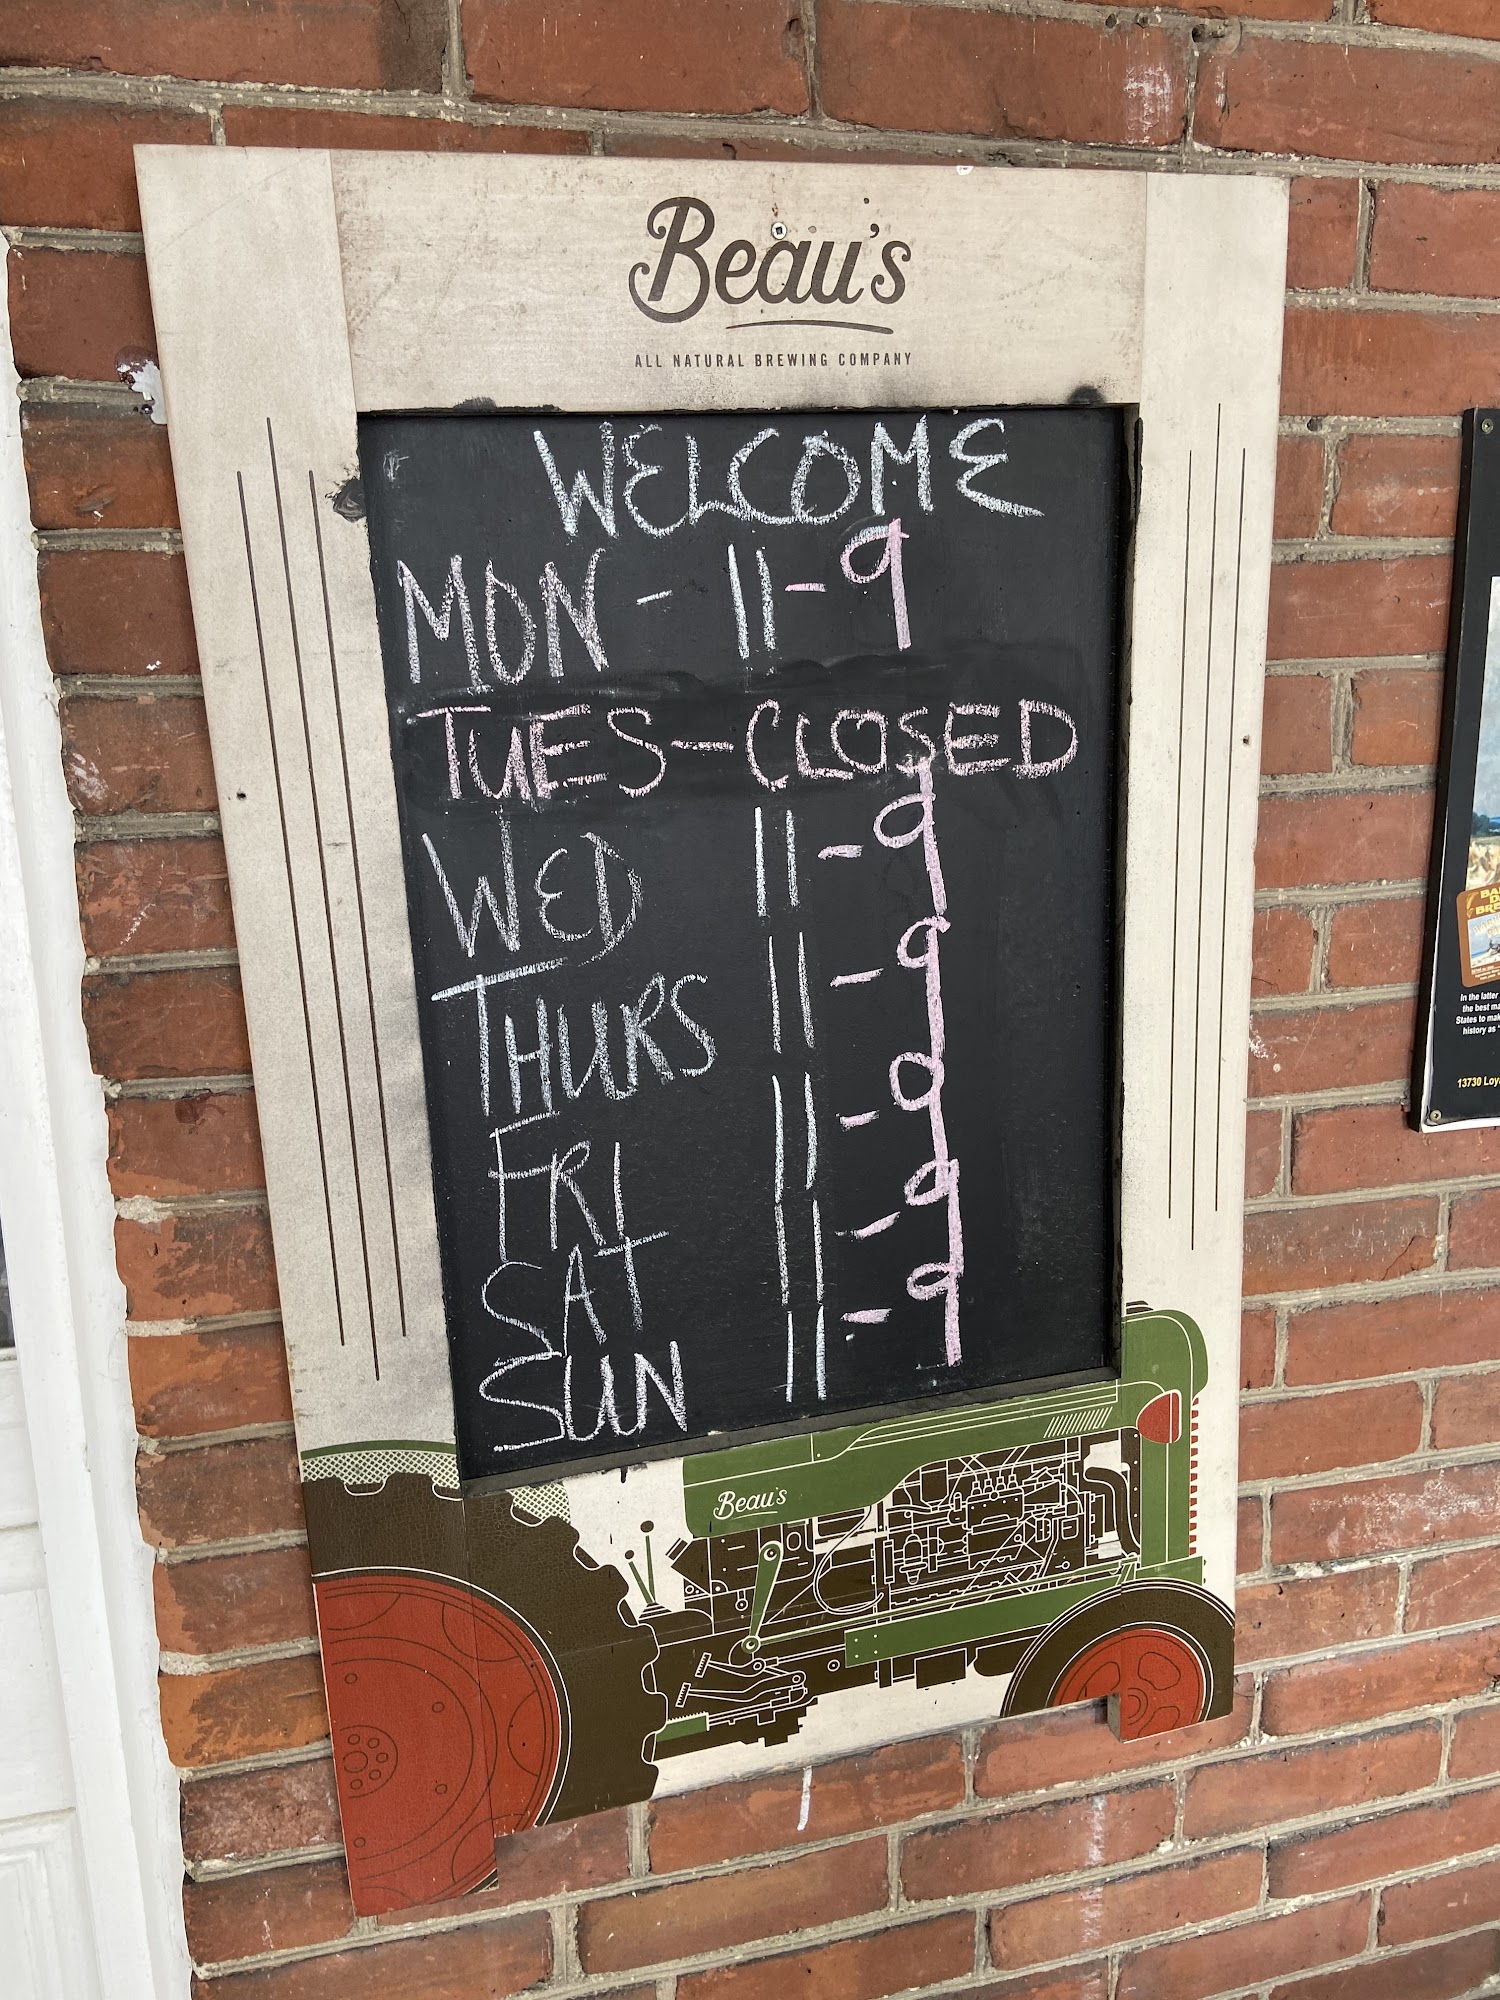 Beau's
ALL NATURAL BREWING COMPANY
WELCOME
MON - 11-9
TUES-CLOSED
WED 11-9
THURS 11-9
FRI 11-9
SAT 11-9
SUN 11-9
Beau's
In the latter
the best ma
States to mak
history as
13730 Loy